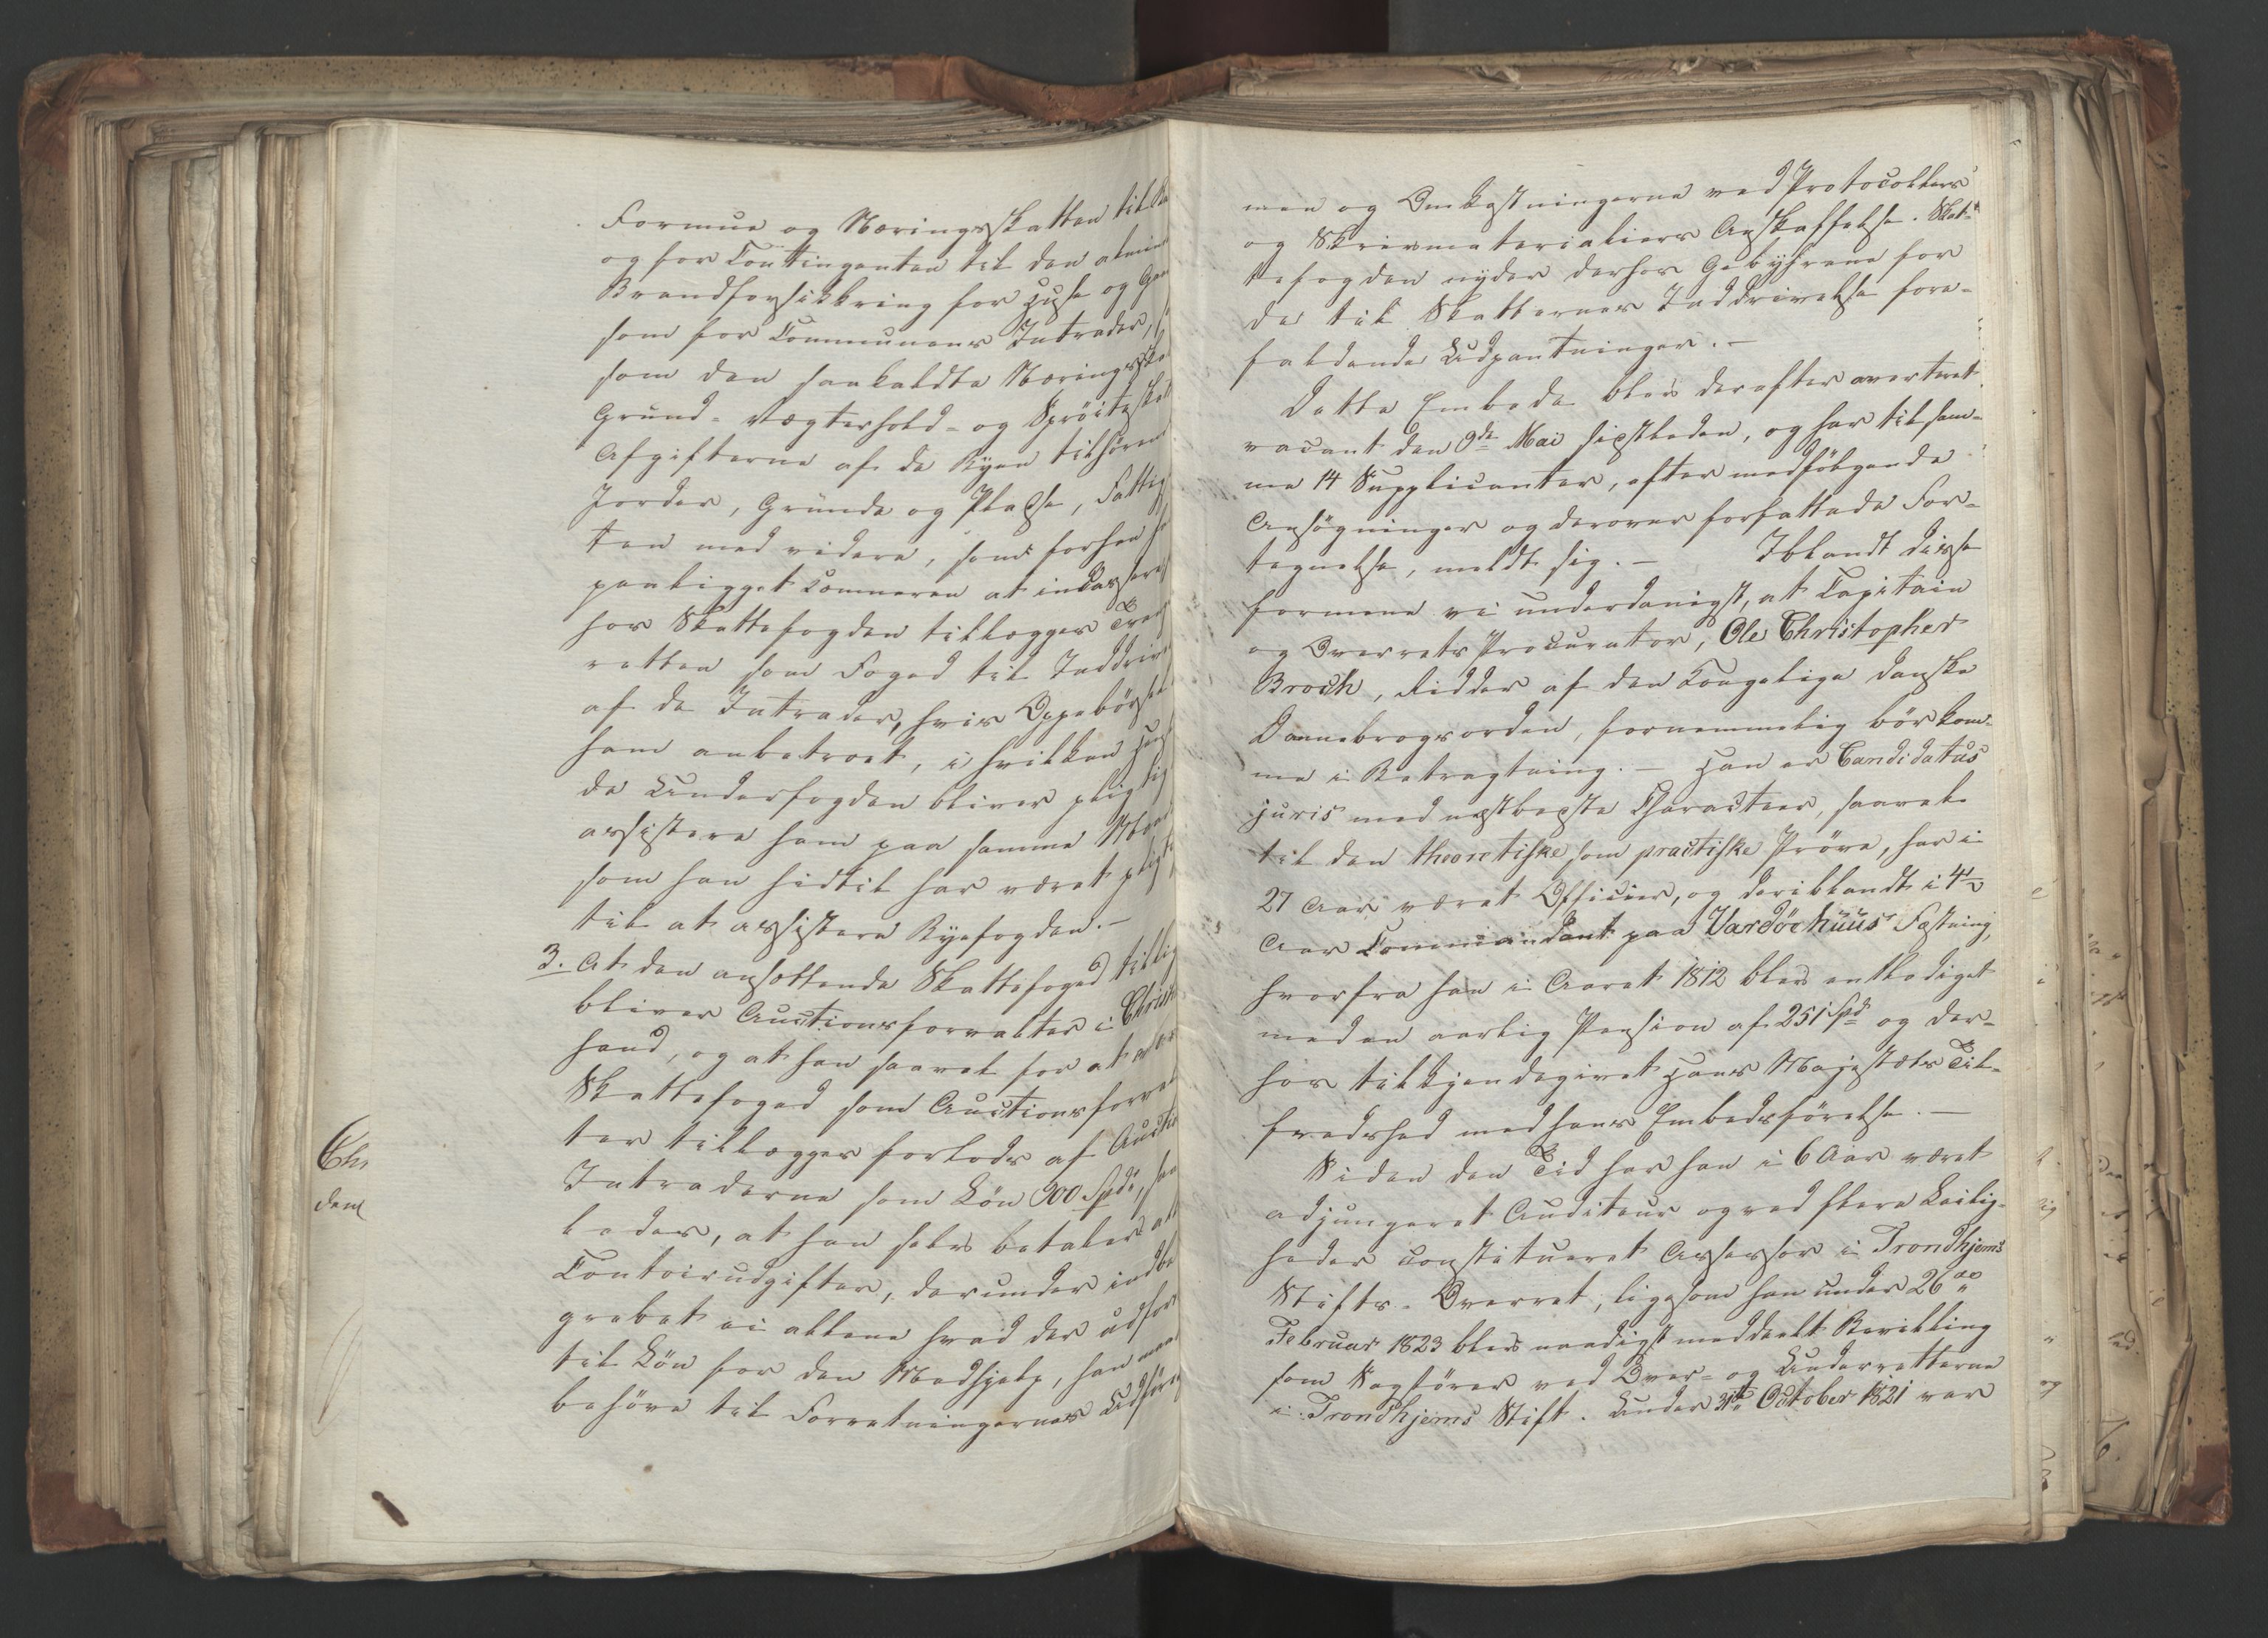 Formue og Næringsskatten til
og for Contingenten til den almin
Brandforsikkring for Huse og
som for Communens Intrader,
som den saakaldte Næringsska
Grund- Vægterhold- og Spröiteskat
Afgifterne af de Byen tilhören
Jorder, Grunde og Pladse, Fattig
ten med videre, som forhen
paaligget Kæmneren at incassere
hos Skattefogden tillægges
retten som Foged til Inddriv
af de Intrader, hvis Oppebörsel
ham anbetroet, i hvilken
de Underfogden bliver pligtig
assistere ham paa samme Maa
som han hidtil har været pligt
til at assistere Byefogden.-
3. At den ansættende Skattefoged tillig
bliver Auctionsforvalter i Christ
sand, og at han saavel for at være
Skattefoged som Auctionsforval
ter tillægges forlods af Auctio
Intraderne som Lön 900 Spd, saa
ledes, at han selv betaler all
Contoirudgifter, derunder indbe
grebet ei allene hvad der udfor
til Lön for den Medhjelp, han maa
behöve til Forretningernes Udföre
Chr
dem
men og Omkostningerne ved Protocollers
og Skrivmaterialiers Anskaffelse. Skat-
tefogden nyder derhos Gebyhrene for
de til Skatternes Inddrivelse fore-
faldende Udpantninger.-
Dette Embede blev derefter averteret
vacant den 9de Mai sidstleden, og har til sam-
me 14 Supplicanter, efter medfölgende
Ansögninger og derover forfattede For-
tegnelse, meldt sig.- Iblandt disse
formene vi underdanigst, at Capitain
og Overrets Procurator, Ole Christopher
Broch, Ridder af den Kongelige danske
Dannebrogsorden, fornemmelig bör kom-
me i Betragtning.- Han er Candidatus
juris med næstbedste Characteer, saavel
til den theoretiske som practiske Pröve, har i
27 Aar været Officier, og deriblandt i 4½
Aar Commandant paa Vardöehuus Fæstning,
hvorfra han i Aaret 1812 blev entlediget
med en aarlig Pension af 251 Spd og der-
hos tilkjendegivet Hans Majestæts Til-
fredshed med hans Embedsförelse.-
Siden den Tid har han i 6 Aar været
adjungeret Auditeur og ved flere Leilig-
heder constitueret Assessor i Trondhjems
Stifts-Overret, ligesom han under 26de
Februar 1823 blev naadigst meddeelt Bevilling
som Sagförer ved Over- og Underretterne
i Trondhjems Stift. Under 31te October 1821 var